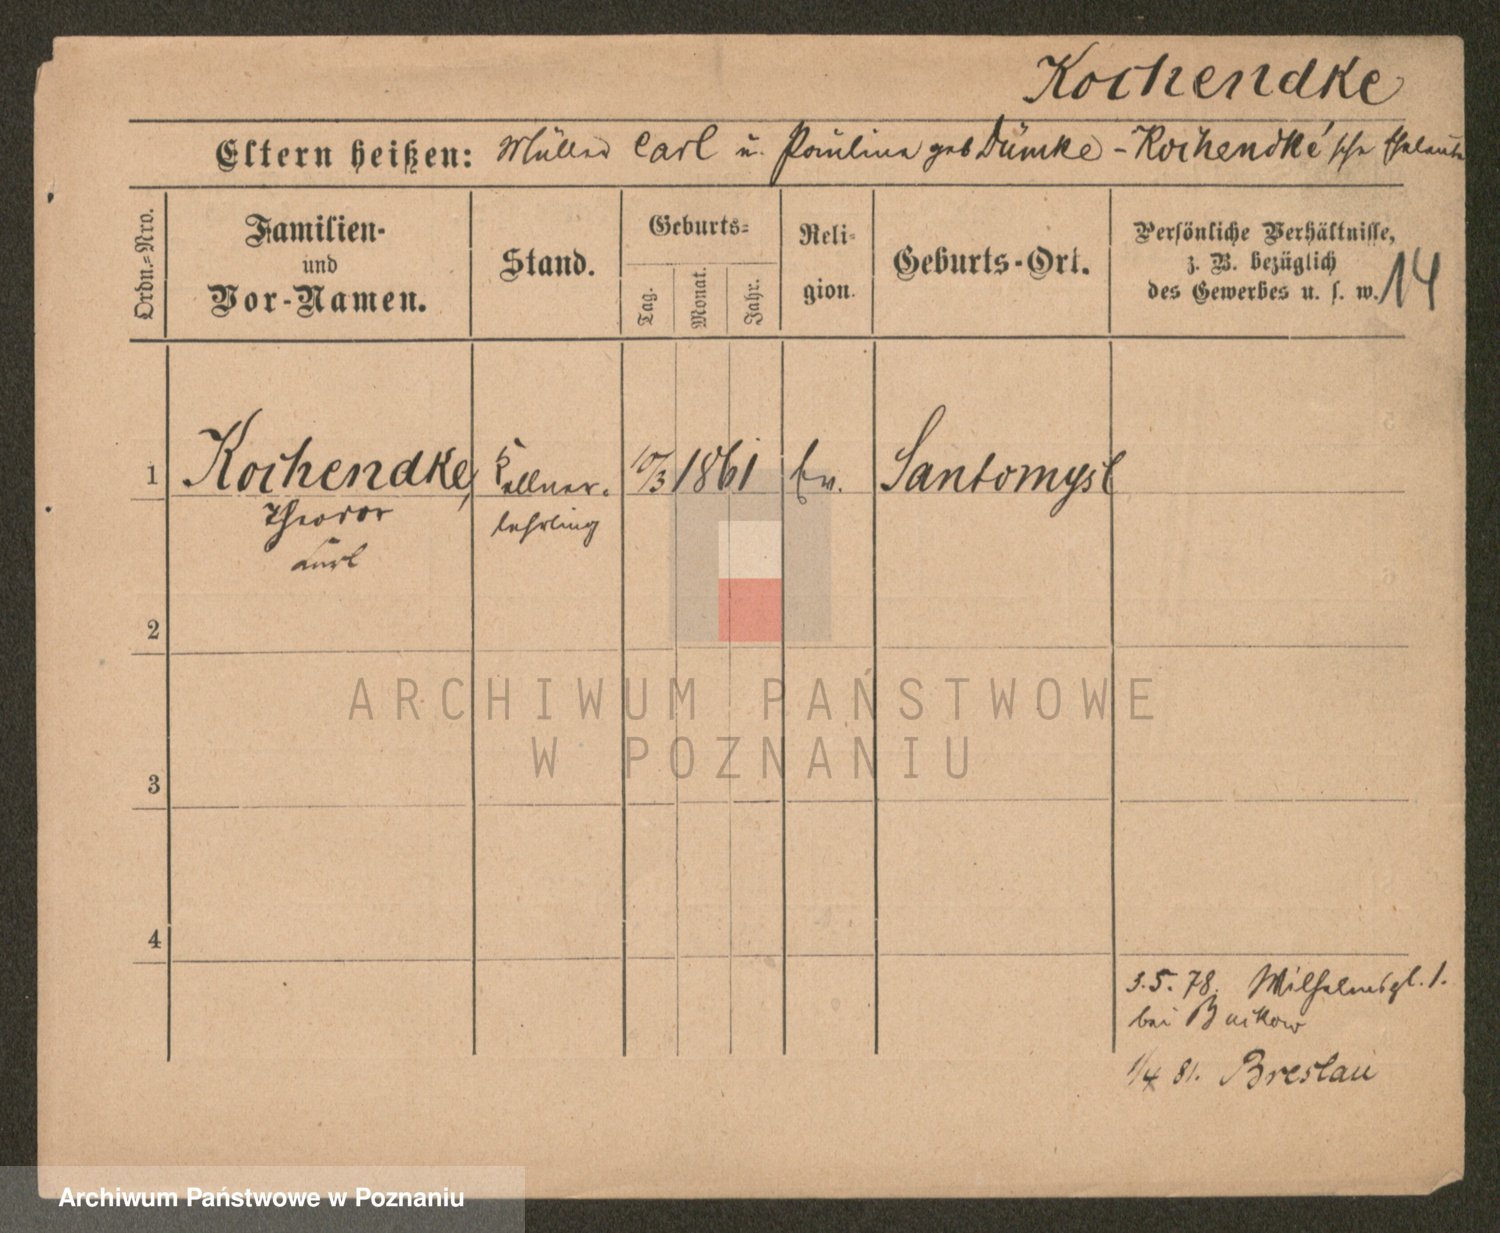 Kochendke
Eltern heißen: Müller Carl u. Pauline geb Dümke - Kochendke'sche Eheleute
Ordn.=Nro.
Familien-
und
Vor-Namen.
Stand.
Geburts=
Tag.
Monat.
Jahr.
Reli-
gion.
Geburts-Ort.
Persönliche Verhältnisse,
z. B. bezüglich
des Gewerbes u. s. w.
14
1 Kochendke, Kellner- 10/3 1861 Ev. Santomysl
Theodor lehrling
Carl
2
ARCHIWUM PAŃSTWOWE
W POZNANIU
3
4
3.5.78. Wilhelmspl. 1.
bei Buckow
1/4 81. Breslau
Archiwum Państwowe w Poznaniu